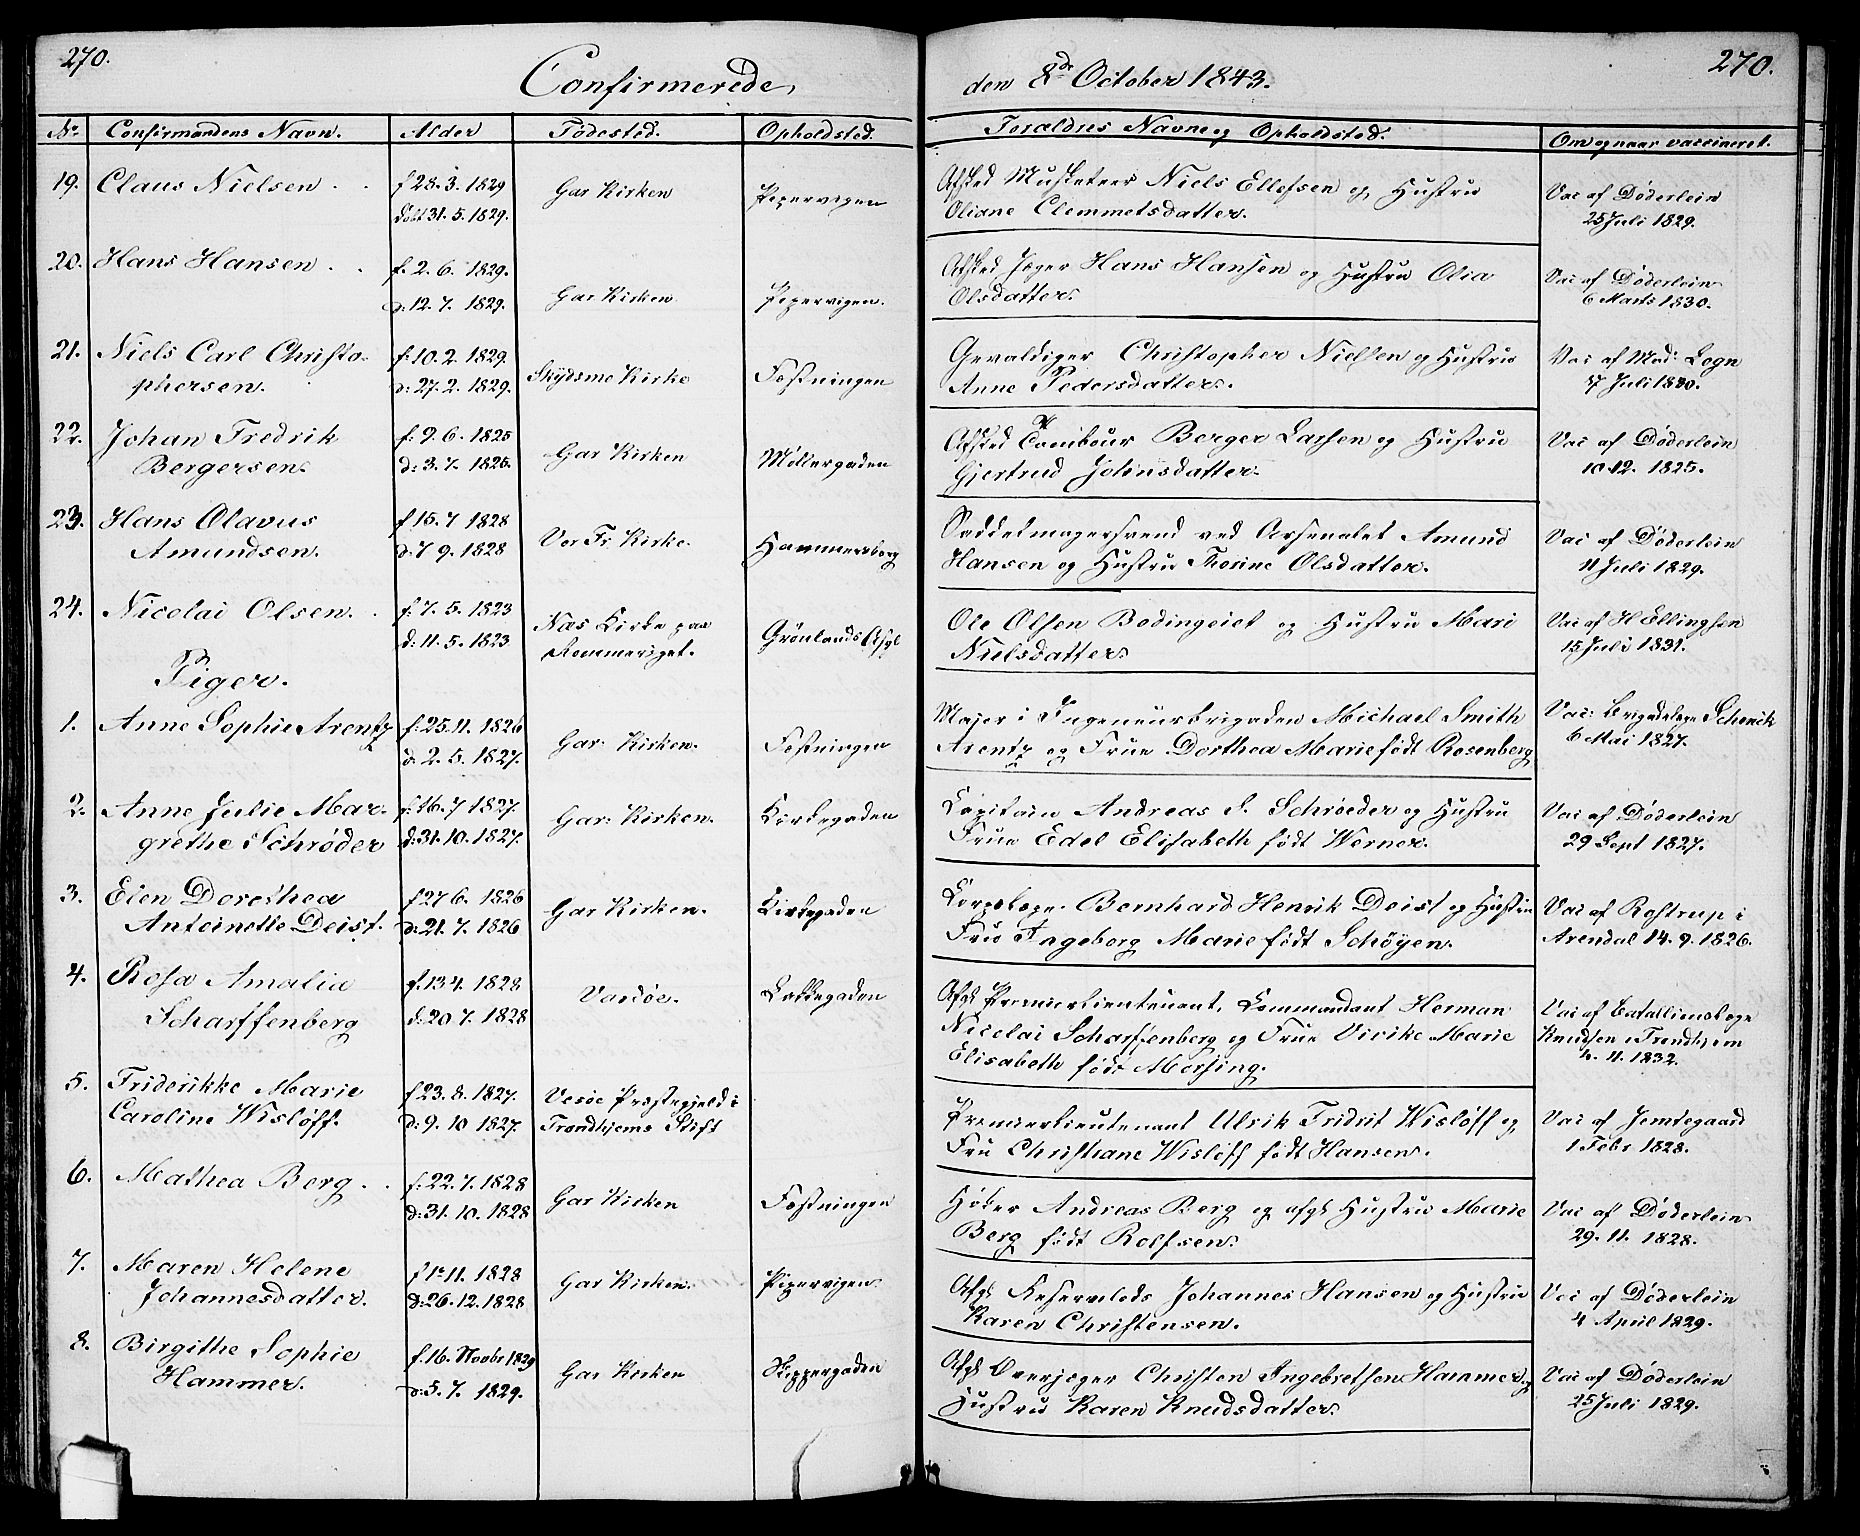 270.
Confirmerede
den 8de October 1843.
270.
No Confirmandens Navn. Alder Födested. Opholdsted. Forældres Navne og Opholdsted. Om og naar vaccineret.
19. Claus Nielsen f 28. 3. 1829 Gar Kirken Pipervigen Afsked Musketeer Niels Ellefsen og Hustru Vac af Døderlein
döbt 31. 5. 1829. Oliane Clemmetsdatter. 25 Juli 1829.
20. Hans Hansen f. 2. 6. 1829. Gar Kirken Pipervigen. Afsked Jæger Hans Hansen og Hustru Olia Vac af Døderlein
d: 12. 7. 1829. Olsdatter. 6 Marts 1830.
21. Niels Carl Christo- f: 10. 2. 1829. Skydsme Kirke Fæstningen Gevaldiger Christopher Nielsen og Hustru Vac af Mad: Logn
phersen. d: 27. 2. 1829. Anne Pedersdatter. 17 Juli 1830.
22. Johan Fredrik f: 9. 6. 1825 Gar Kirken Möllergaden Afsked Tambour Berger Larsen og Hustru Vac af Døderlein
Bergersen. d: 3. 7. 1825. Gjertrud Johnsdatter. 10. 12. 1825.
23. Hans Olavus f 15. 7 1828 Vor Fr. Kirke. Hammersborg Saddelmagersvend ved Arsenalet Amund Vac af Døderlein
Amundsen. d: 7 9. 1828 Hansen og Hustru Thorine Olsdatter. 11 Juli 1829.
24. Nicolai Olsen. f. 7. 5. 1823 Næs Kirke paa Grönlands Ole Olsen Bodingeiet og Hustru Mari Vac af H Ellingsen
d: 11. 5. 1823 Romeriget. Nielsdatter. 15 Juli 1831.
Piger.
1. Anne Sophie Arentz f: 25. 11. 1826 Gar: Kirken. Fæstningen Major i Ingeneurbrigaden Michael Smith Vac: Brigadelæge Schenck
d. 2. 5. 1827. Arentz og Frue Dorthea Marie født Rosenberg 6 Mai 1827.
2. Anne Julie Mar- f. 16. 7 1827. Gar: Kirken. Kirkegaden Capitain Andreas S. Schrøeder og Hustru Vac af Døderlein
grethe Schrøder d: 31. 10. 1827. Frue Edel Elisabeth født Werner. 29 Sept 1827.
3. Elen Dorothea f 27 6. 1826 Gar Kirken. Kirkegaden Corpslæge Bernhard Henrik Deist og Hustru Vac af Rostrup i
Antoinette Deist. d: 21. 7. 1826 Frue Ingeborg Marie født Schöyen. Arendal 14. 9. 1826.
4. Rosa Amalia f. 13 4. 1828 Vardöe. Afgk Premierlieutenant, Commandant Herman Vac af Batallionslæge
Scharffenberg d: 20 7. 1828 Nicolai Scharffenberg og Frue Virike Marie Knudsen i Trondhjem
Elisabeth født Mørsing. 4. 11. 1832.
5. Friderikke Marie f 23. 8. 1827. Præstegjeld i Premierlieutenant Ulrik Fridrik Wisløff og Vac af Jemtegaard
Caroline Wisløff. d: 9. 10 1827. Trondhjems Stift Fru Christiane Wisløff født Hansen. 1 Febr 1828.
6. Mathea Berg. f. 22. 7. 1828 Gar Kirken Fæstningen Høker Andreas Berg og afgk Hustru Marie Vac af Døderlein
d: 31. 10. 1828 Berg født Rolfsen. 29. 11. 1828.
7. Maren Helene f 1. 11. 1828 Gar Kirken. Pipervigen Afgk Johannes Hansen og Hustru Vac af Døderlein
Johannesdatter. d: 26. 12. 1828 Karen Christensen. 4 April 1829.
8. Birgithe Sophie f. 16. Novbr 1829 Gar Kirken Skippergaden Afgk Overjæger Christen Ingebretsen Hammer og Vac af Døderlein
Hammer. d: 5. 7. 1829. Hustru Karen Knudsdatter. 25 Juli 1829.